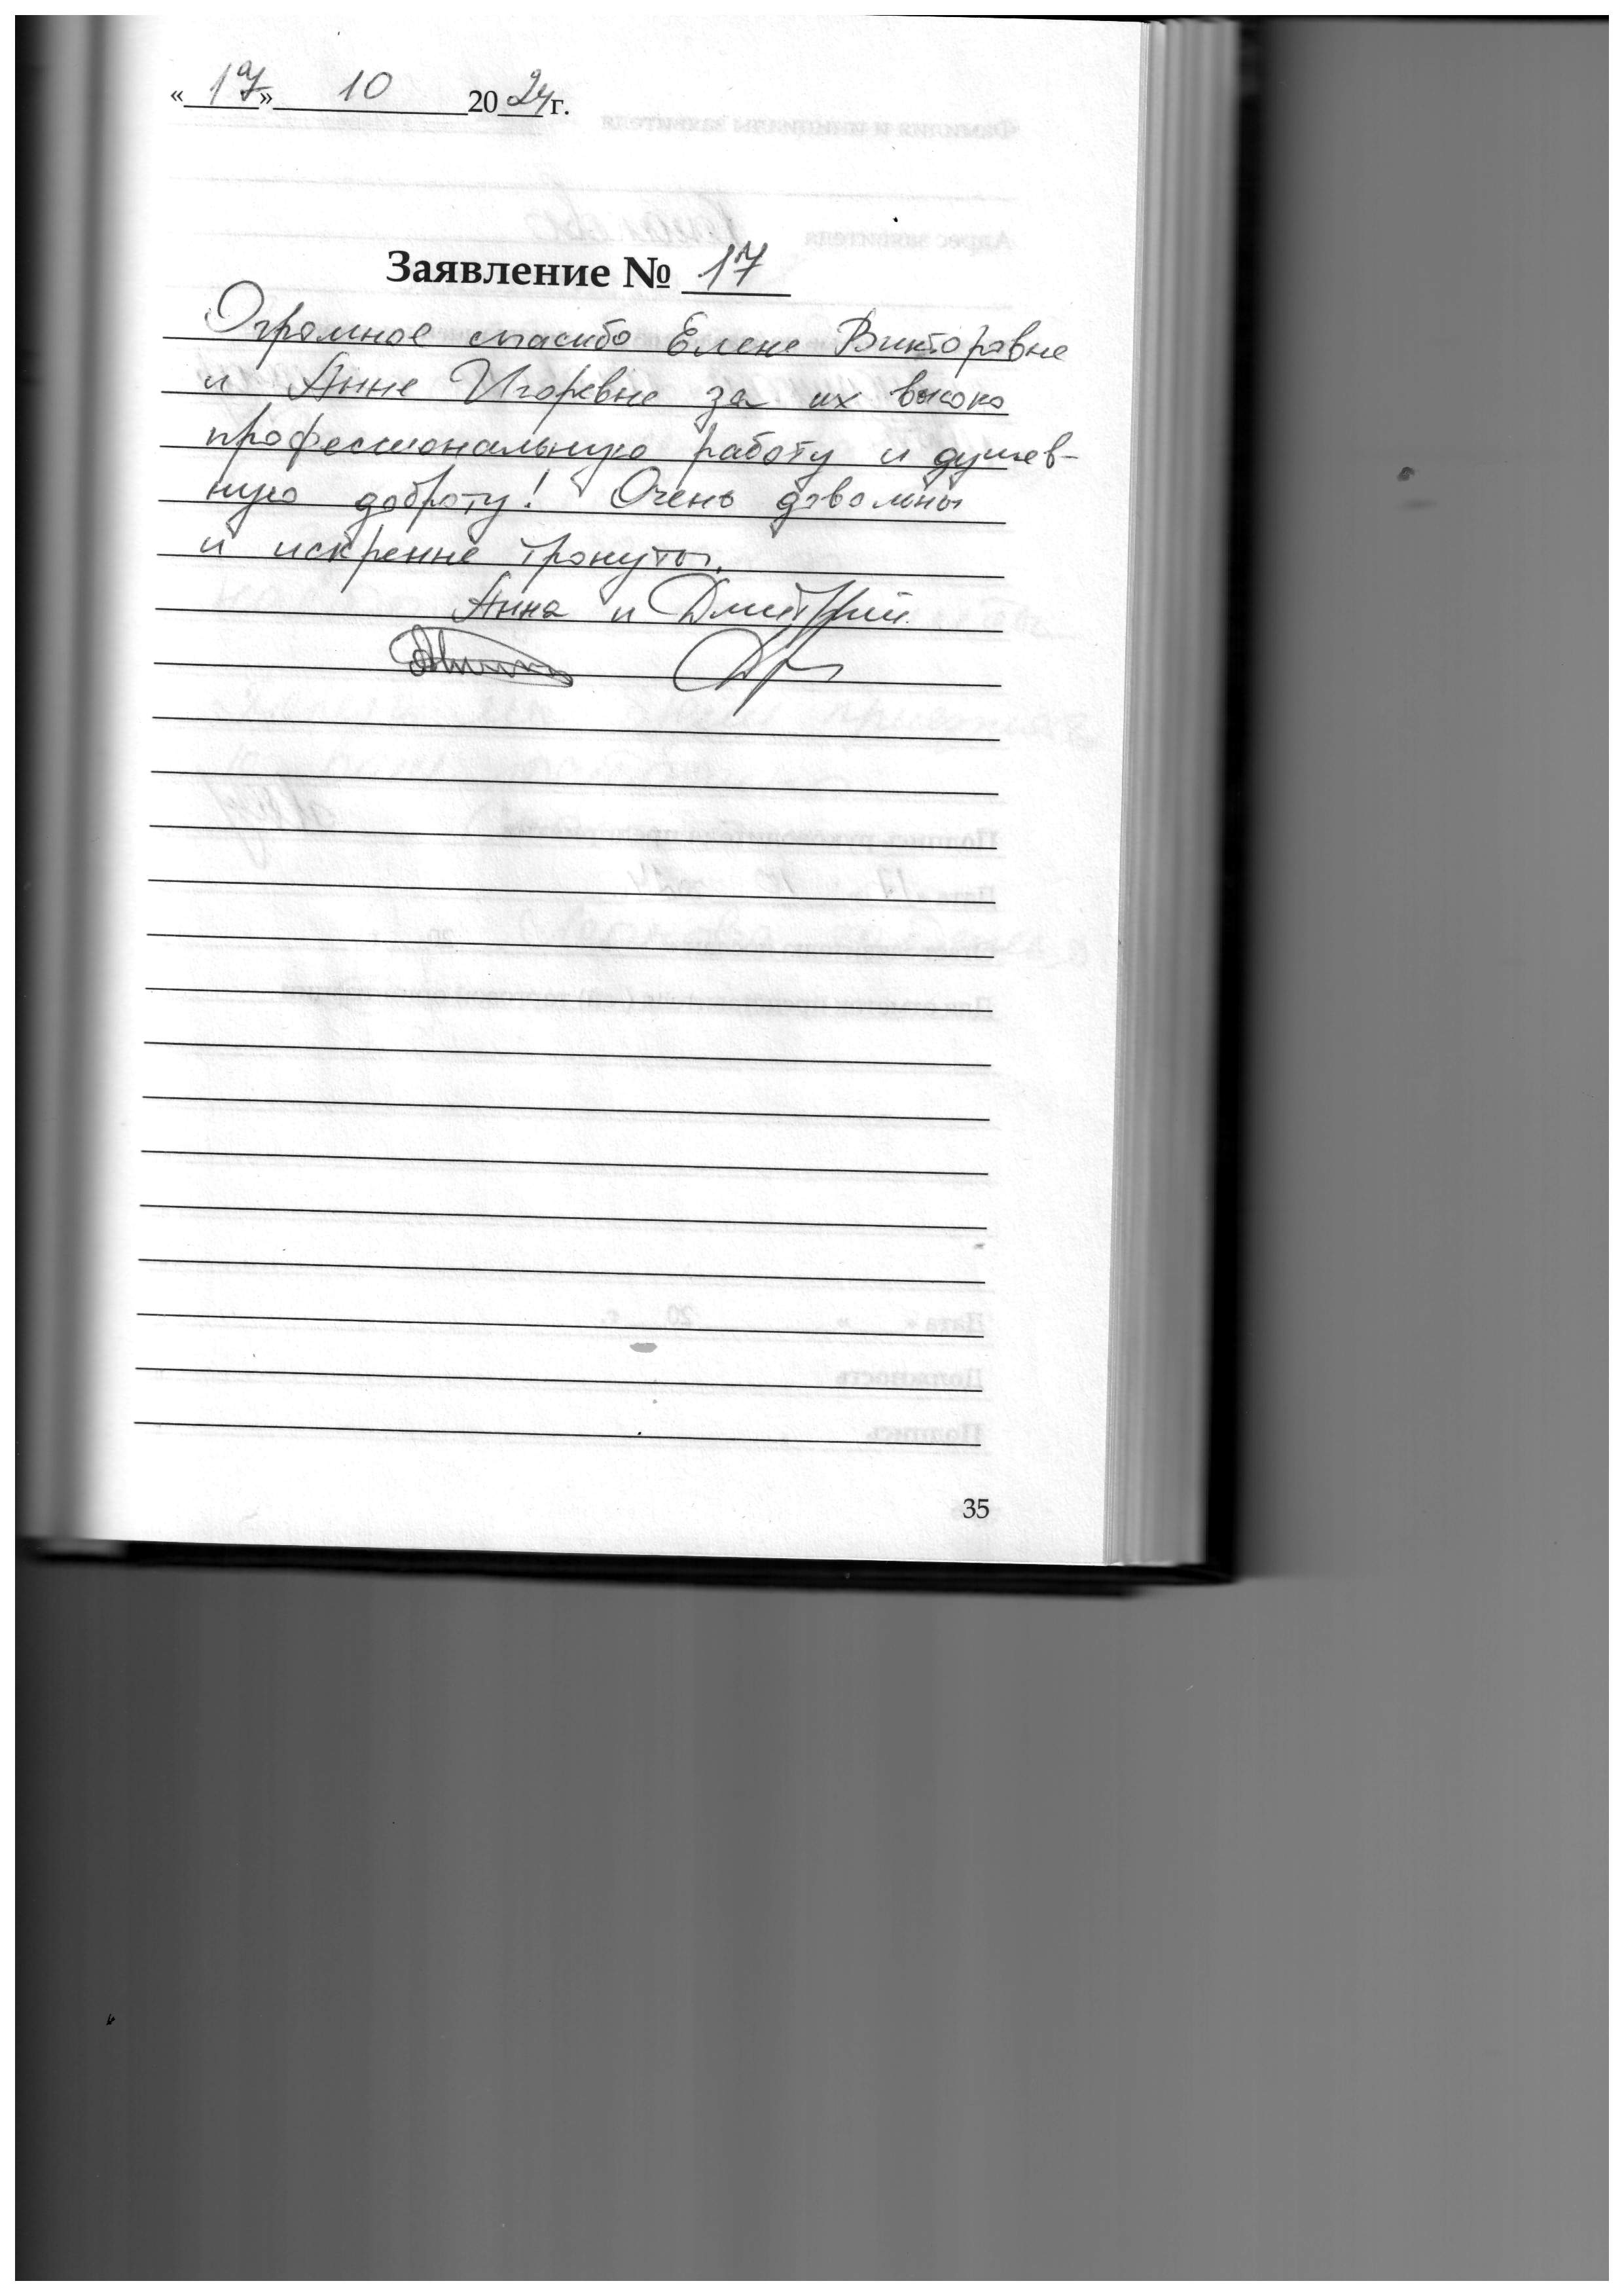 «17» 10 2024 г.
Заявление № 17
Огромное спасибо Елене Викторовне
и Анне Игоревне за их высоко
профессиональную работу и душев-
ную доброту! Очень довольны
и искренне тронуты.
Анна и Дмитрий.
35